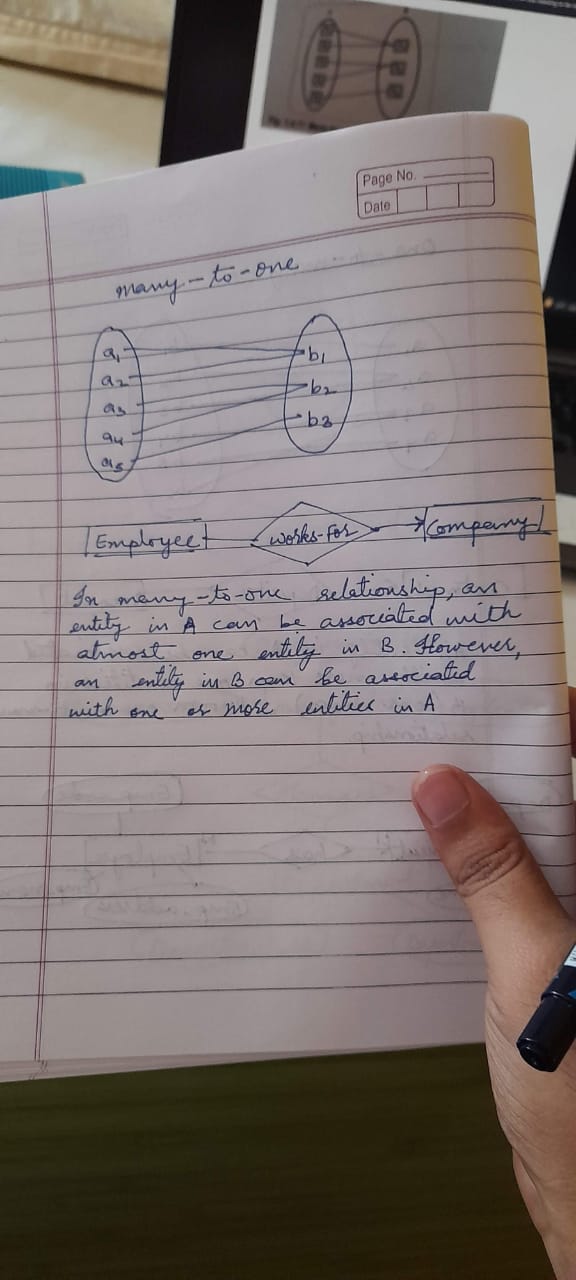 Page No.
Date
many-to-one
a1 b1
a2
a3 b2
a4 b3
a5
Employee works-for Company
In many-to-one relationship, an
entity in A can be associated with
atmost one entity in B. However,
an entity in B can be associated
with one or more entities in A